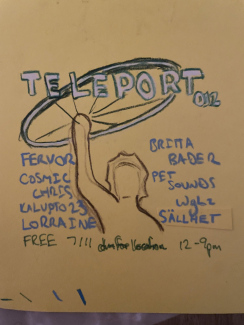 TELEPORT
012
FERVOR
COSMIC
CHRIS
KALUPTO23
LORRAINE
BRITTA
BADER
PET
SOUNDS
WGLZ
SÄLLHET
FREE 7/11 dm for location 12-9pm